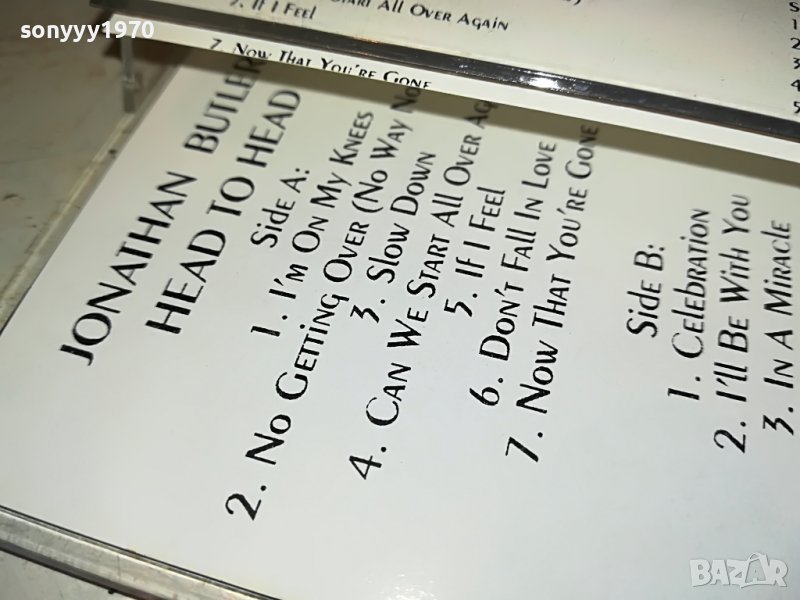 sonyyy1970
Start All Over Again
5. If I Feel
7. Now That You're Gone
1
2
3
4
5
JONATHAN BUTLER
HEAD TO HEAD
Side A:
1. I'm On My Knees
2. No Getting Over (No Way No
3. Slow Down
4. Can We Start All Over Ag
5. If I Feel
6. Don't Fall In Love
7. Now That You're Gone
Side B:
1. Celebration
2. I'll Be With You
3. In A Miracle
BAZAR